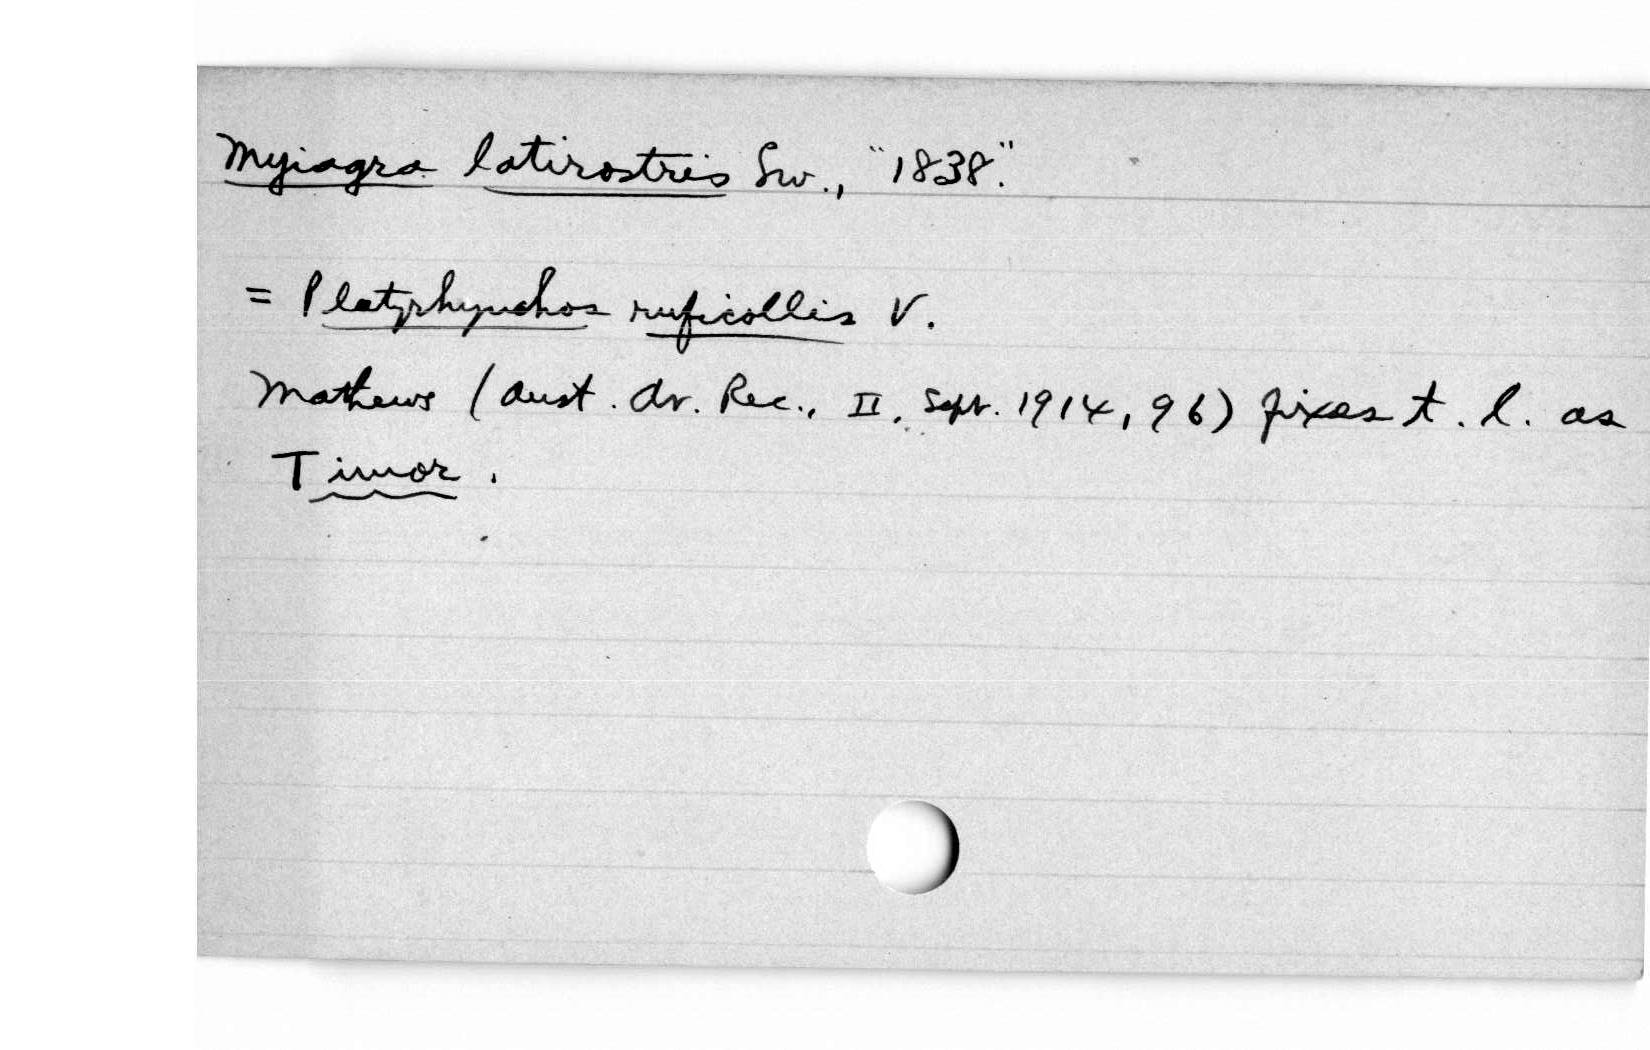 Myiagra latirostris Sw., "1838".
= Platyrhynchos ruficollis V.
Mathews (Aust. Av. Rec., II, Sept. 1914, 96) fixes t. l. as
Timor.